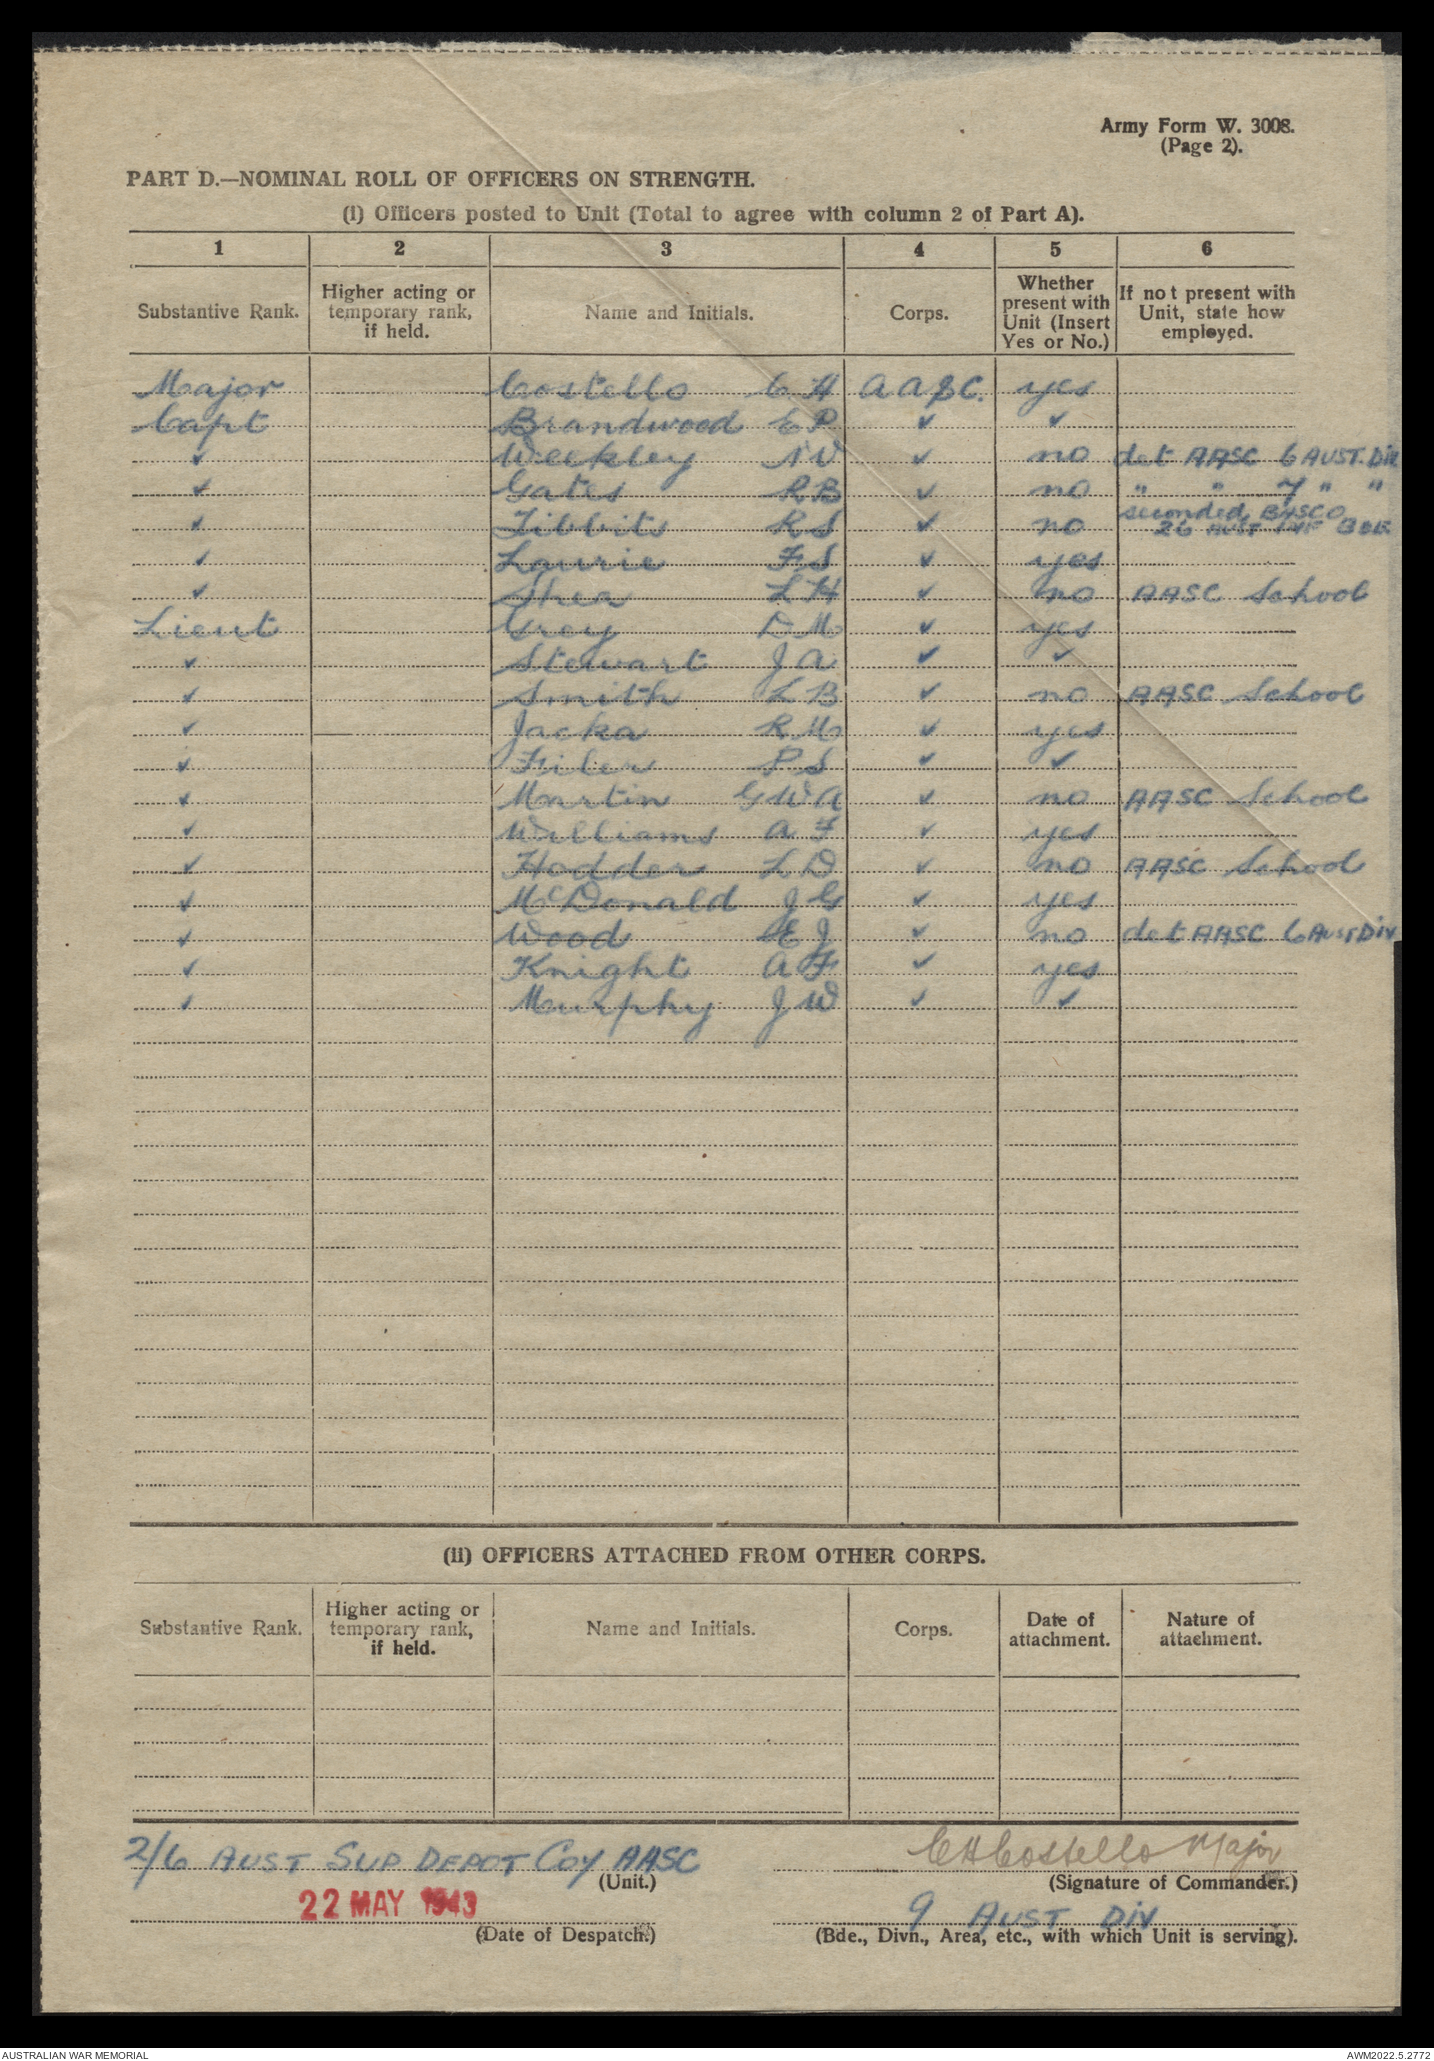 Army Form W. 3008.
(Page 2).
PART D.—NOMINAL ROLL OF OFFICERS ON STRENGTH.
(i) Officers posted to Unit (Total to agree with column 2 of Part A).
1 2 3 4 5 6
Substantive Rank. Higher acting or temporary rank, if held. Name and Initials. Corps. Whether present with Unit (Insert Yes or No.) If not present with Unit, state how employed.
Major Costello C H AASC. yes
Capt Brandwood E P ✓ ✓
✓ Weekley N W ✓ no det AASC 6 AUST. Div
✓ Gates R B ✓ no " " 7 " "
✓ Tibbits R S ✓ no seconded BASCO
26 AUST INF BDE
✓ Laurie F S ✓ yes
✓ Shea L H ✓ no AASC School
Lieut Grey D M ✓ yes
✓ Stewart J A ✓ ✓
✓ Smith L B ✓ no AASC School
✓ Jacka R M ✓ yes
✓ Filer P S ✓ ✓
✓ Martin G W A ✓ no AASC School
✓ Williams A F ✓ yes
✓ Hodder L D ✓ no AASC School
✓ McDonald J G ✓ yes
✓ Wood E J ✓ no det AASC 6 Aust Div
✓ Knight A F ✓ yes
✓ Murphy J W ✓ ✓
(ii) OFFICERS ATTACHED FROM OTHER CORPS.
Substantive Rank. Higher acting or temporary rank, if held. Name and Initials. Corps. Date of attachment. Nature of attachment.
2/6 AUST SUP DEPOT COY AASC CH Costello Major
(Unit.) (Signature of Commander.)
22 MAY 1943 9 AUST DIV
(Date of Despatch.) (Bde., Divn., Area, etc., with which Unit is serving).
AUSTRALIAN WAR MEMORIAL AWM2022.5.2772